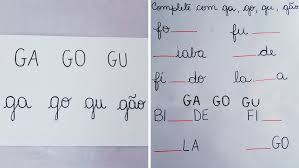 GA GO GU
ga go gu gão
Complete com ga, go, gu, gão
fo___ fu___
___iaba ___de
fí___do la___a
GA GO GU
BI___DE FI___
___LA ___GO